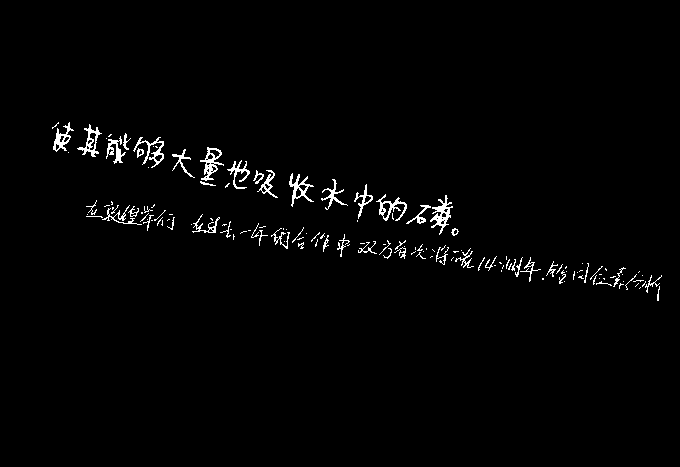 使其能够大量地吸收水中的磷。
在敦煌举行 在过去一年的合作中双方首次将碳14测年、锶同位素分析